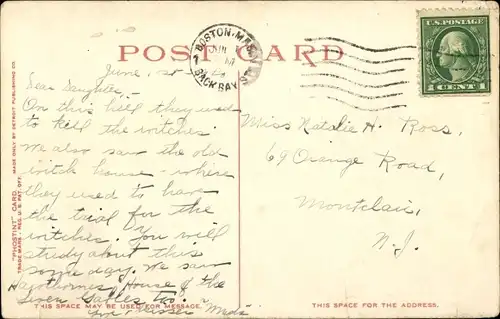 POST CARD
BOSTON, MASS.
BACK BAY
U.S. POSTAGE
1 CENT 1
June,
Dear Daughter,
On this hill they used
to kill the witches.
We also saw the old
witch house - where
they used to have
the trial for the
witches. You will
study about this
some day. We saw
Hawthornes House of the
Seven Gables too.
Miss Natalie H. Ross,
69 Orange Road,
Montclair,
N.J.
"PHOSTINT" CARD. MADE ONLY BY DETROIT PUBLISHING CO.
TRADE MARK REG. U.S. PAT. OFF.
THIS SPACE MAY BE USED FOR MESSAGE.
THIS SPACE FOR THE ADDRESS.